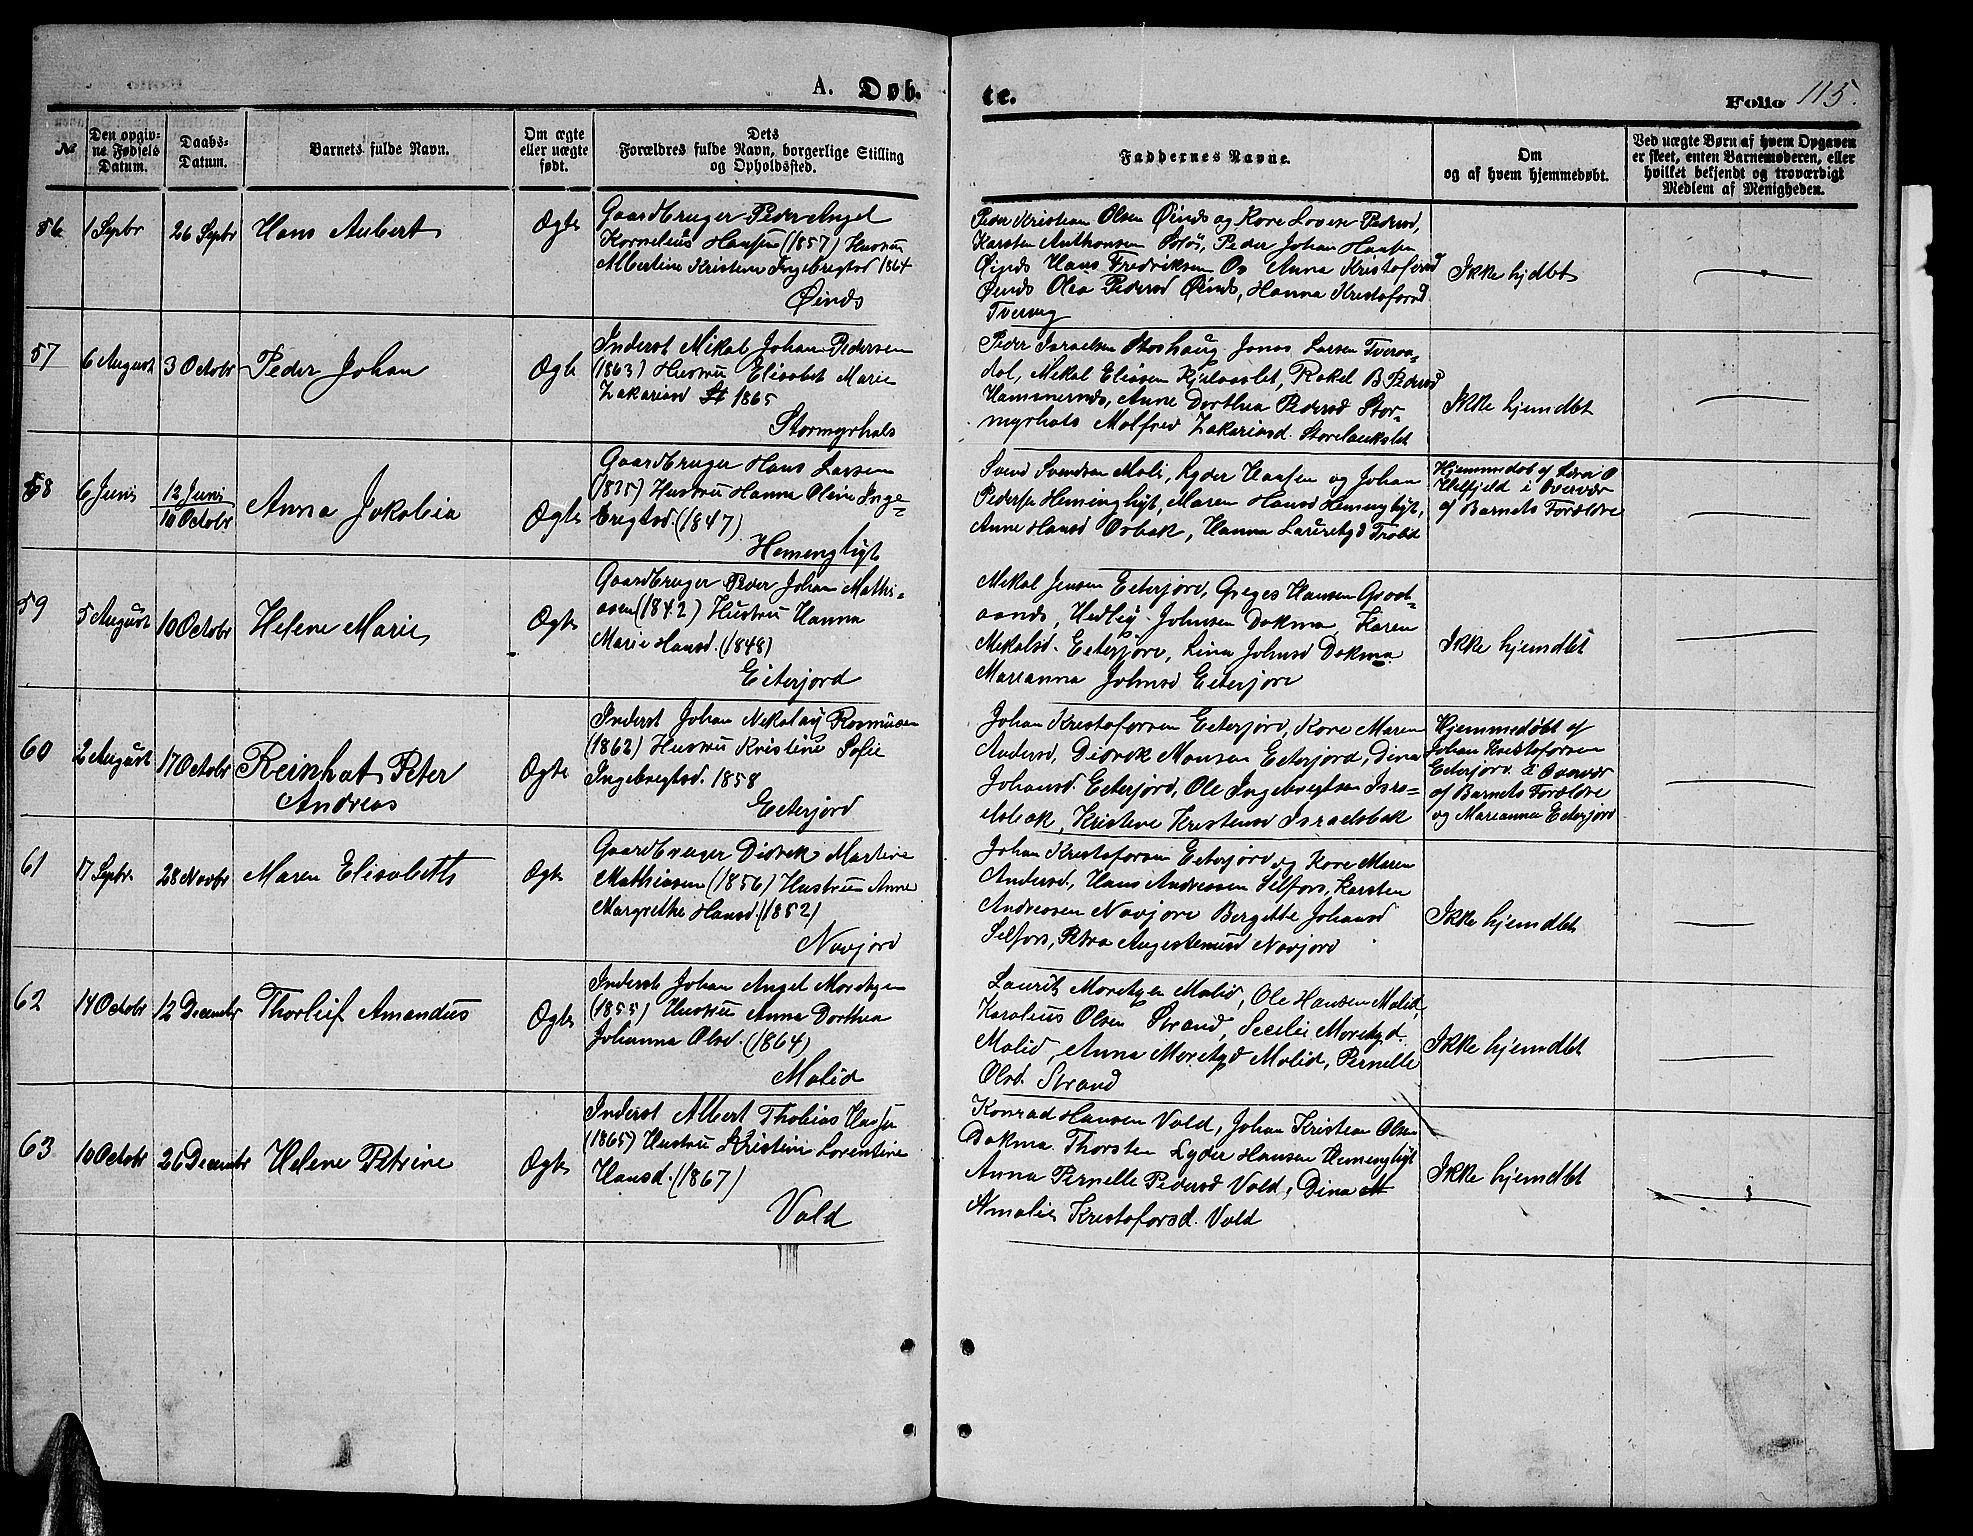 A. Døb.
te.
Folio 115.
№
Den opgiv-
ne Fødsels
Datum.
Daabs-
Datum.
Barnets fulde Navn.
Om ægte
eller uægte
født.
Dets
Forældres fulde Navn, borgerlige Stilling
og Opholdssted.
Faddernes Navne.
Om
og af hvem hjemmedøbt.
Ved uægte Børn af hvem Opgaven
er skeet, enten Barnemoderen, eller
hvilket bekjendt og troværdigt
Medlem af Menigheden.
56
1 Septbr
26 Septbr
Hans Aubert
Ogte
Gaardbruger Peder Angel
Kornelius Hansen (1857) Hustru
Albertine Kristine Ingebregtsd 1864
Øinds
Peder Kristian Olsen Øinds og Kore Lovise Pedersd,
Karsten Anthonsen Peder Johan Hansen
Øinds Hans Fredriksen Os Anna Kristofersd
Øinds Olea Pedersd Øinds, Hanna Kristofersd
Tverng
Ikke hjdbt
57
6 August
3 Octobr
Peder Johan
Ogte
Inderst Mikal Johan Pedersen
(1863) Hustru Elisabet Marie
Zakariasd 1865
Stormyrhals
Peder Israelsen Stoshaug Jonas Larsen Tveraa-
dal, Mikal Eliasen Rakel B Pedersd
Hammernæs, Anne Dorthea Pedersd Stor-
myrhals Molfred Zakariasd. Storelankslet
Ikke hjemdbt
58
6 Juni
12 Juni
10 Octobr
Anna Jakobia
Ogte
Gaardbruger Hans Larsen
(1835) Hustru Hanna Oline Inge=
brigtsd (1847)
Hemengligt
Svend Svendsen Moli, Lyder Hansen og Johan
Pedersen Hemingligt, Maren Hansd Hemengligt,
Anne Hansd Hanna
Hjemmedøbt af
i Overvær
af Barnets Forældre
59
5 August
10 Octobr
Helene Marie
Ogte
Gaardbruger Peder Johan Mathi-
asen (1842) Hustru Hanna
Marie Hansd. (1848)
Eiterjord
Mikal Jensen Eeterjord, Greges Hansen Grøt-
aands, Hedley Johnsen Dokma, Karen
Mekalsd. Eeterjord, Lina Johnsd Dokma.
Marianna Johnsd Eeterjord
Ikke hjemdbt
60
2 August
17 Octobr
Reinhat Peter
Andreas
Ogte
Inderst Johan Nikolay Rasmusen
(1862) Hustru Kristine Sofie
Ingebregtsd. 1858
Eeterjord
Johan Kristofersen Eeterjord, Kore Maren
Andersd, Didrik Monsen Eeterjord, Dina
Johansd. Eeterjord, Ole Ingebregtsen Isra-
elsbak, Kristine Kristensd Israelsbak
Hjemmedøbt af
Johan Kristofersen
Eeterjord i Overvær
af Barnets Forældre
og Marianna Eeterjord
61
17 Septbr.
28 Novbr
Maren Elisabeth
Ogte
Gaardbruger Didrik Martine
Mathiasen (1856) Hustru Anne
Margrethe Hansd. (1852)
Navjord
Johan Kristofersen Eeterjord og Kore Maren
Andersd., Hans Andreasen Selfors, Karsten
Andreasen Navjord Bergette Johansd
Selfors, Petra Augestinusd Navjord
Ikke hjemdbt
62
14 Octobr
12 Decembr
Thorleif Amandus
Ogte
Inderst Johan Angel Moritzen
(1855) Hustru Anna Dorthea
Johanna Olsd. (1864)
Molid
Laurits Moritzen Molid, Ole Hansen Molid,
Karolius Olsen Strand, Secelie Moritzd.
Molid, Anna Moritzd Molid, Pernelle
Olsd. Strand
Ikke hjemdbt
63
10 Octobr
26 Decembr
Helene Petrine
Ogte
Inderst Albert Thobias Hansen
(1865) Hustru Kristine Lorentine
Hansd. (1867)
Vold
Konrad Hansen Vold, Johan Kristian Olsen
Dokma Thorsten Lyder Hansen Hemengligt
Anna Pernelle Pedersd Vold, Dina
Amalie Kristofersd. Vold
Ikke hjemdbt